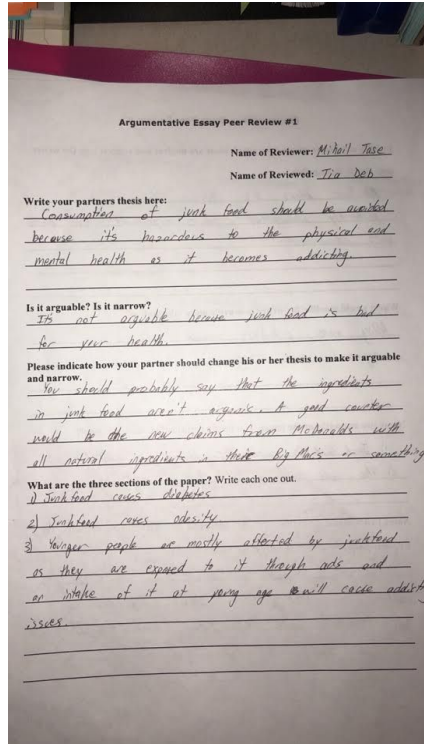 Argumentative Essay Peer Review #1
Name of Reviewer: Mihail Tase
Name of Reviewed: Tia Deb
Write your partners thesis here:
Consumption of junk food should be avoided
because it's hazardous to the physical and
mental health as it becomes addicting.
Is it arguable? Is it narrow?
It's not arguable because junk food is bad
for your health.
Please indicate how your partner should change his or her thesis to make it arguable
and narrow.
You should probably say that the ingredients
in junk food aren't organic. A good counter
would be the new claims from McDonalds with
all natural ingredients in their Big Mac's or something
What are the three sections of the paper? Write each one out.
1) Junk food causes diabetes
2) Junk food causes obesity
3) Younger people are mostly affected by junk food
as they are exposed to it through ads and
an intake of it at young age will cause
issues.